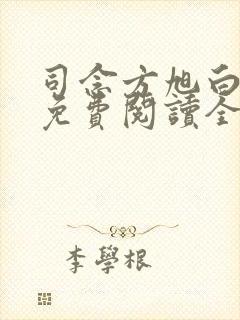 司念方旭白
免費閱讀全
李學根